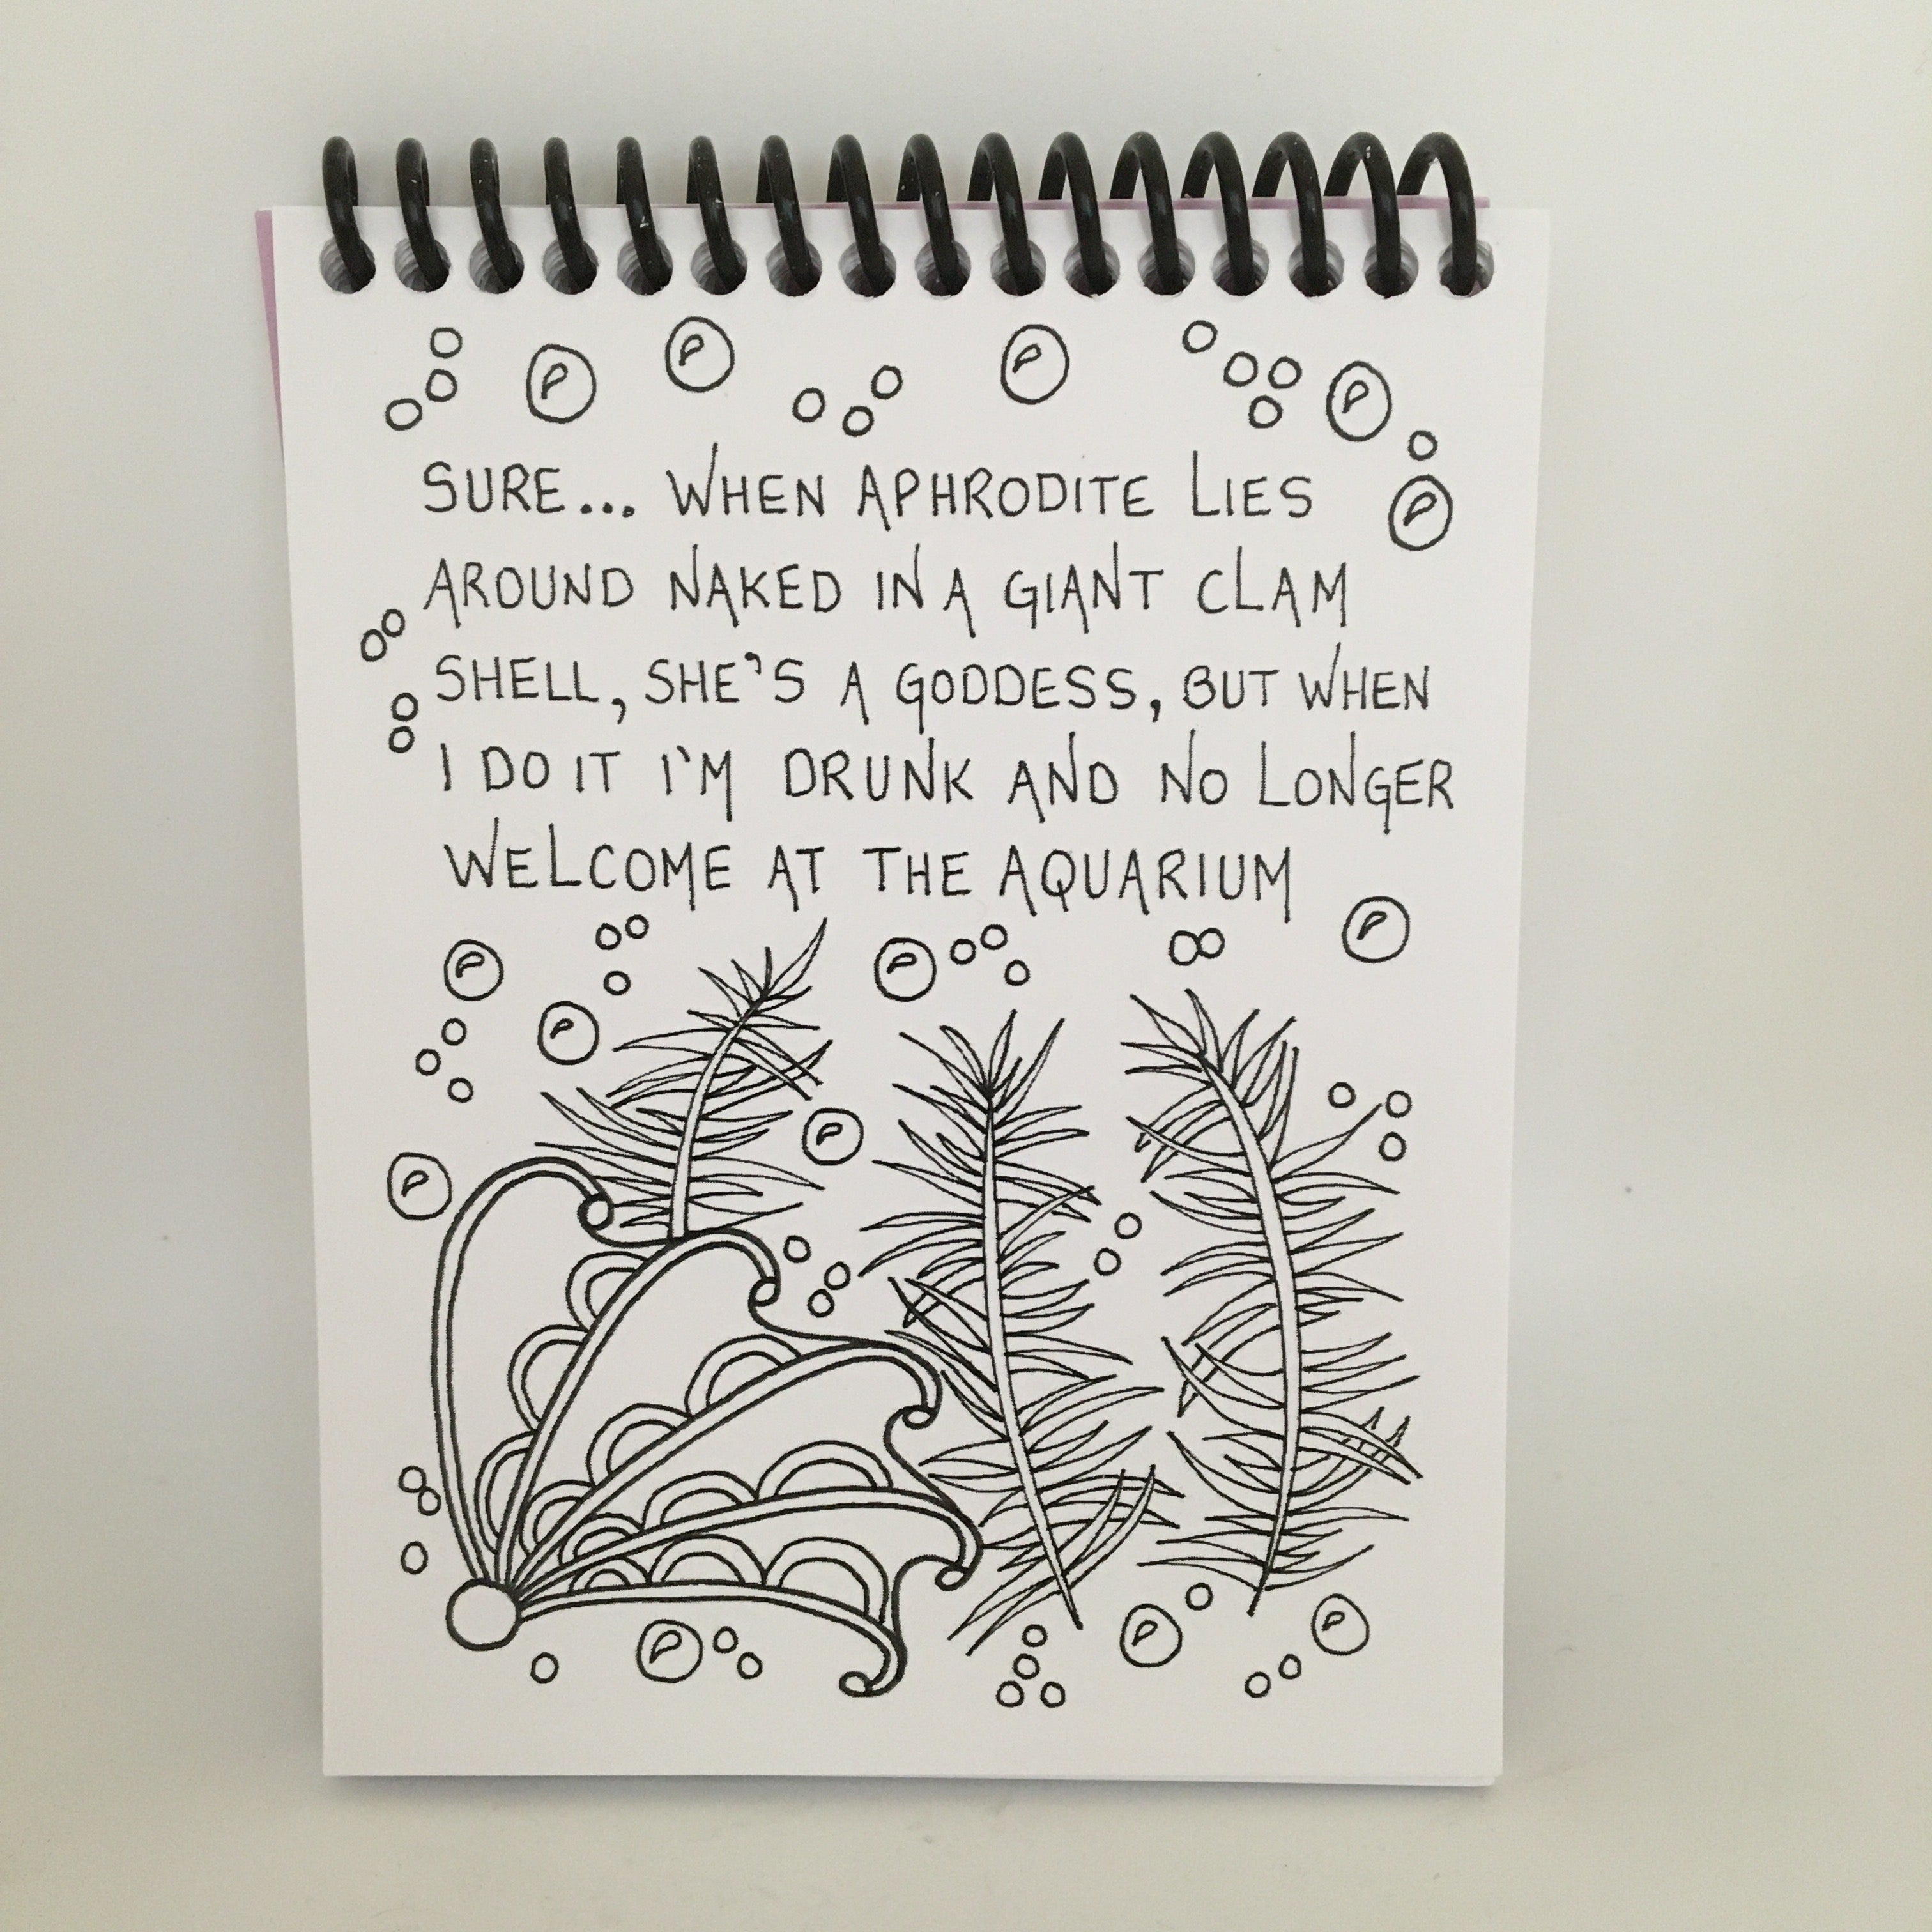 SURE... WHEN APHRODITE LIES
AROUND NAKED IN A GIANT CLAM
SHELL, SHE'S A GODDESS, BUT WHEN
I DO IT I'M DRUNK AND NO LONGER
WELCOME AT THE AQUARIUM